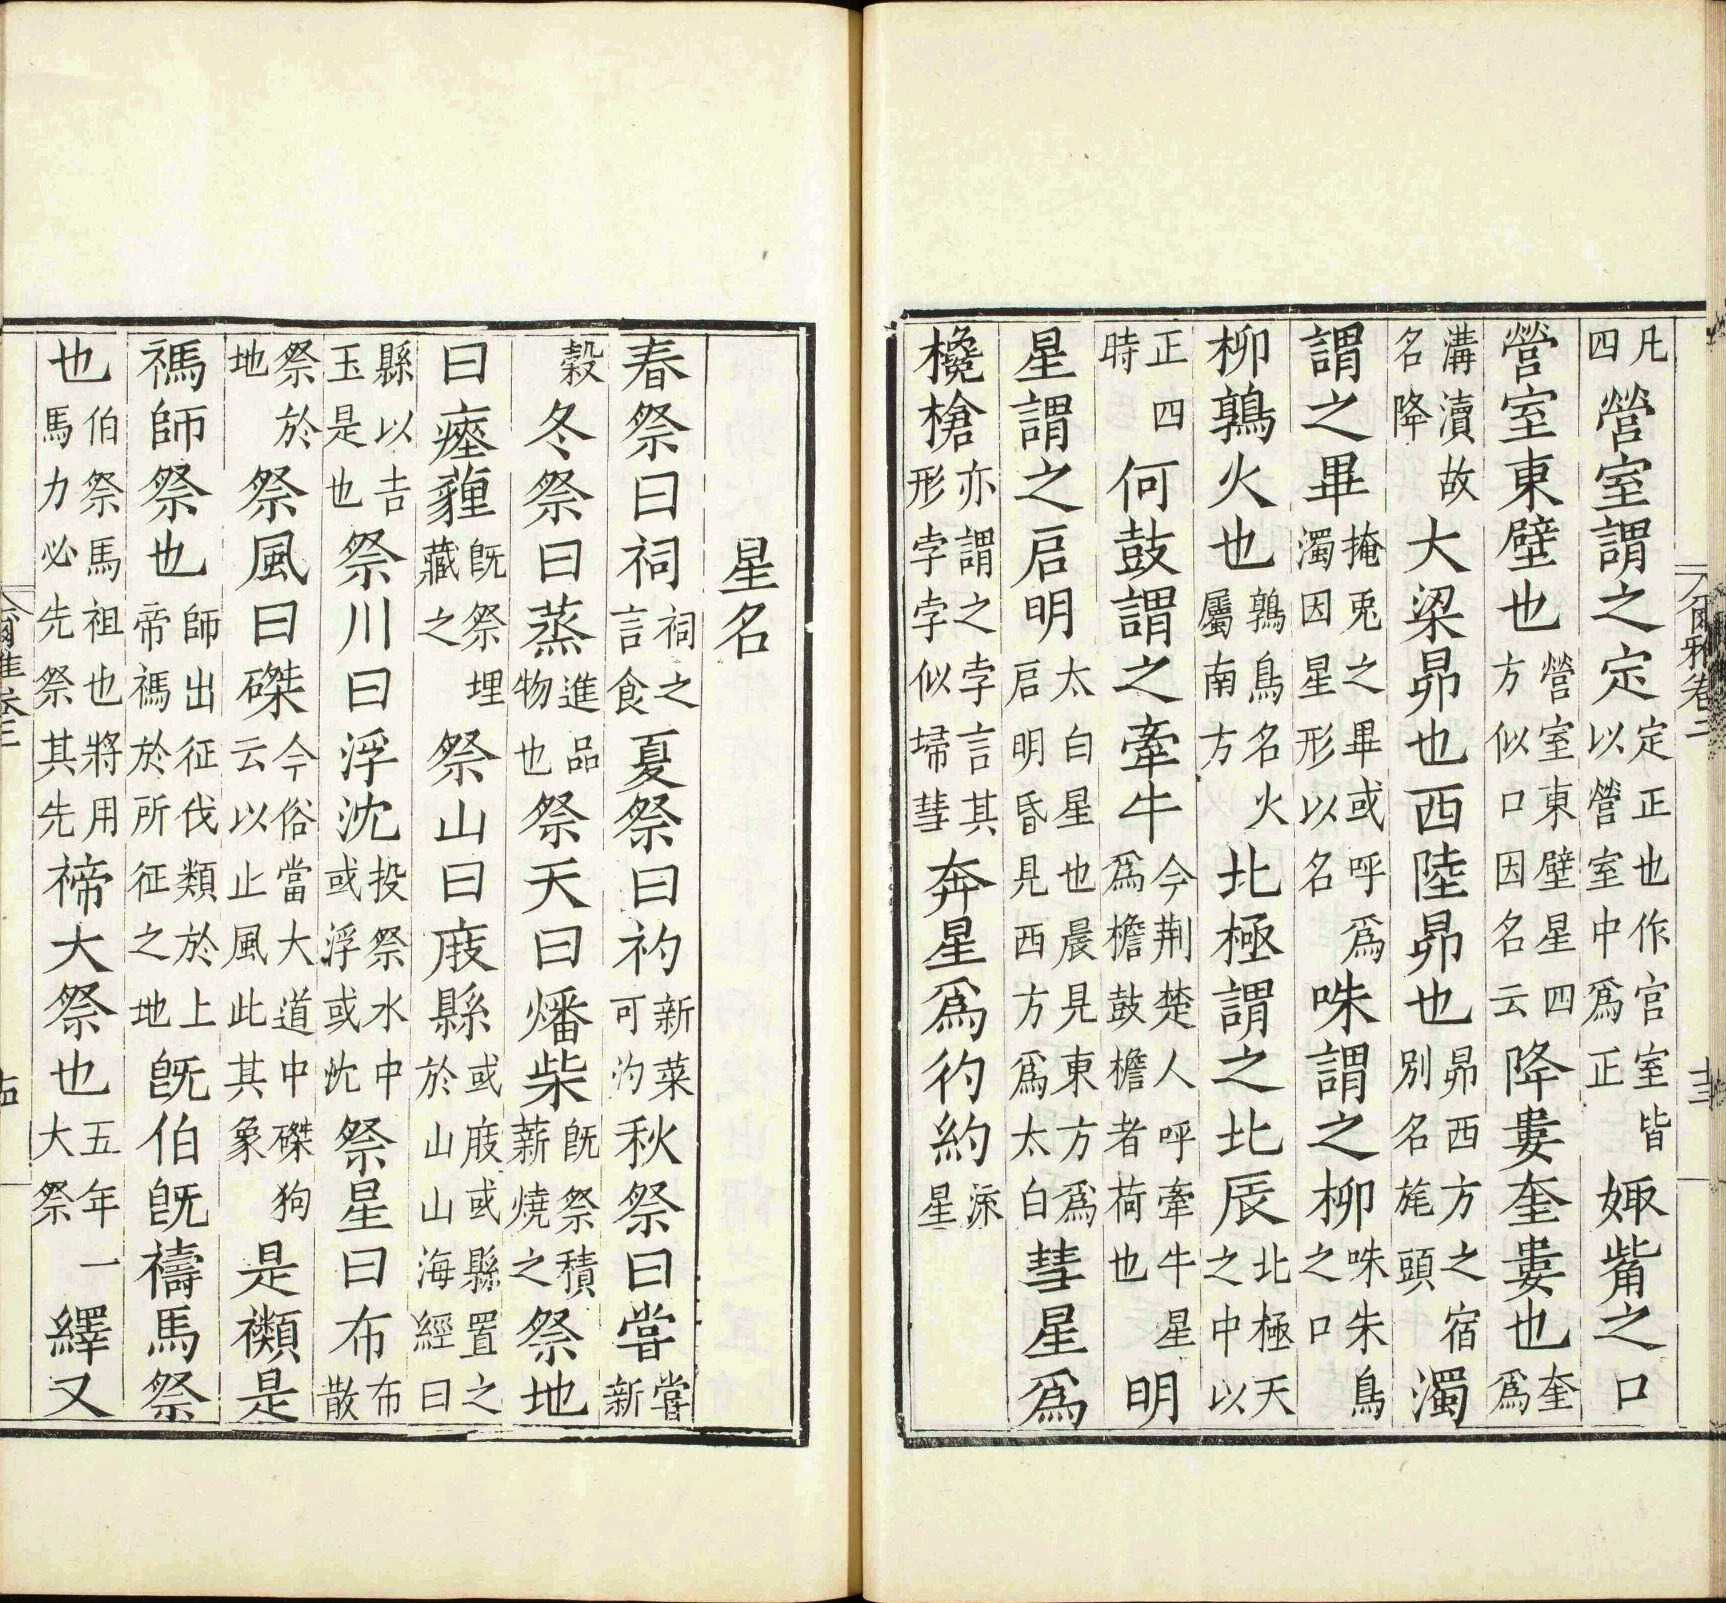 爾雅卷
十三
凡四營室謂之定定正也作宮室皆以營室中爲正娵觜之口
營室東壁也營室東壁星四方似口因名云降婁奎婁也奎爲
溝瀆故名降大梁昴也西陸昴也昴西方之宿別名旄頭濁
謂之畢掩兎之畢或呼爲濁因星形以名咮謂之柳咮朱鳥之口
柳鶉火也鶉鳥名火屬南方北極謂之北辰北極天之中以
正四時何鼓謂之牽牛今荆楚人呼牽牛星爲檐鼓檐者荷也明
星謂之启明太白星也晨見東方爲启明昏見西方爲太白彗星爲
欃槍亦謂之孛言其形孛孛似埽彗奔星爲彴約流星
星名
春祭曰祠祠之言食夏祭曰礿新菜可汋秋祭曰嘗嘗新
穀冬祭曰蒸進品物也祭天曰燔柴旣祭積薪燒之祭地
曰瘞薶旣祭埋藏之祭山曰庪縣或庪或縣置之於山山海經曰
縣以吉玉是也祭川曰浮沈投祭水中或浮或沈祭星曰布布散
祭於地祭風曰磔今俗當大道中磔狗云以止風此其象是禷是
禡師祭也師出征伐類於上帝禡於所征之地旣伯旣禱馬祭
也伯祭馬祖也將用馬力必先祭其先禘大祭也五年一大祭繹又